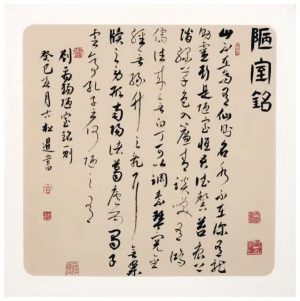 陋室銘
山不在高有仙則名水不在深有龍
則靈斯是陋室惟吾德馨苔痕上
階綠草色入簾青談笑有鴻
儒往來無白丁可以調素琴閱金
經無絲竹之亂耳無案
牘之勞形南陽諸葛廬西蜀子
雲亭孔子云何陋之有
劉禹錫陋室銘一則
癸巳 月 松 書